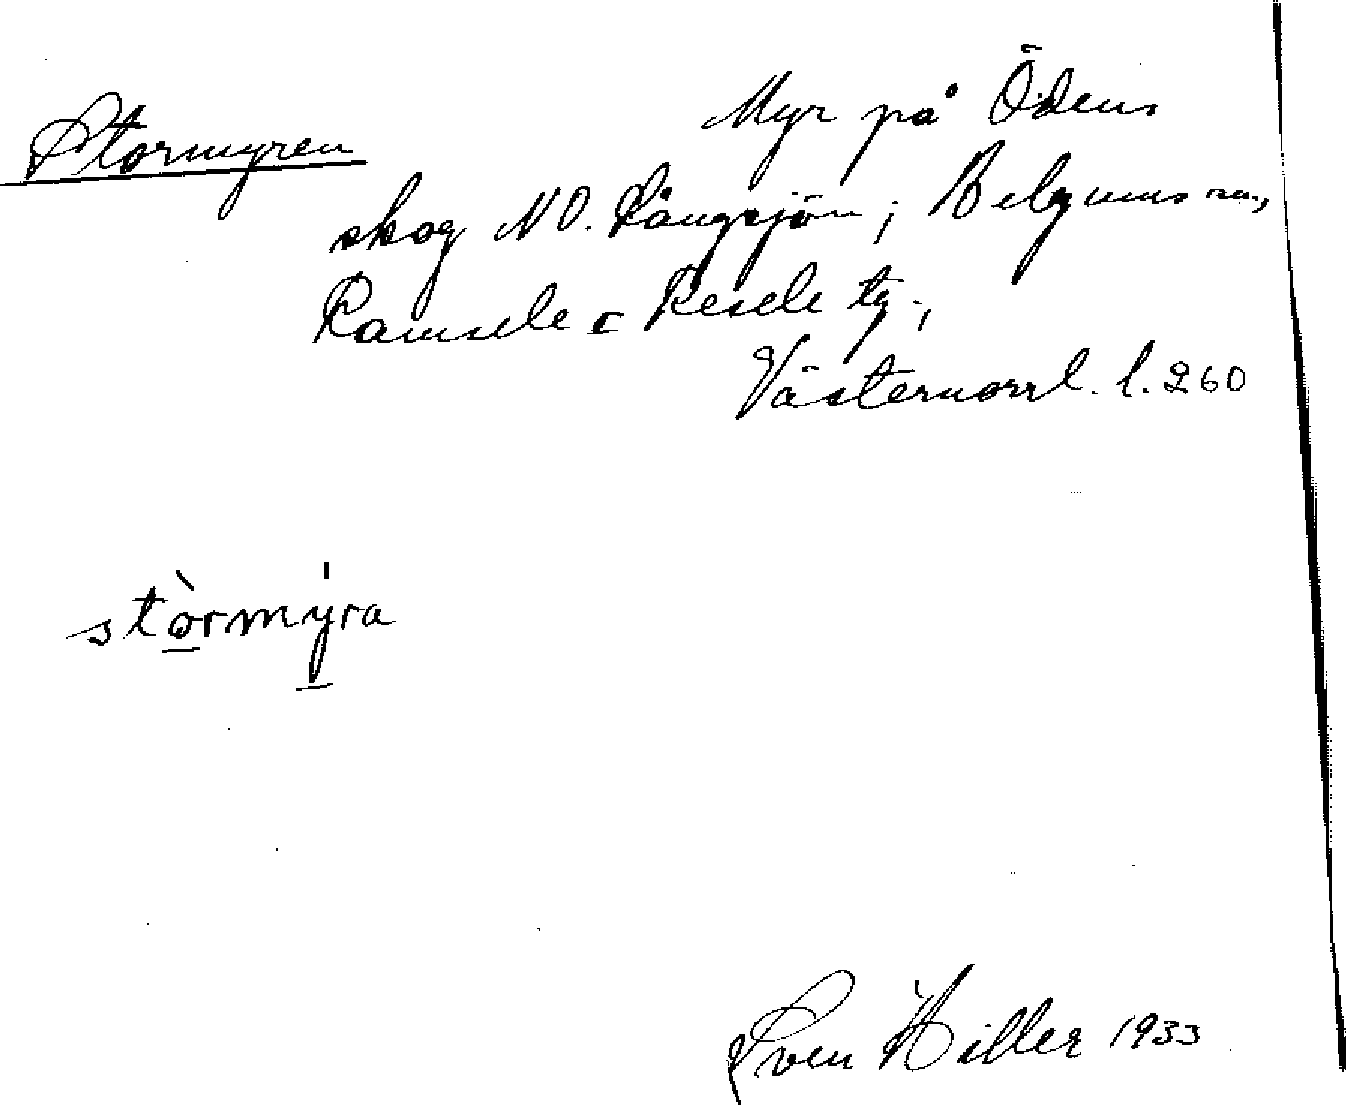 Stormyren
Myr på Ödens
skog NO. Långsjön; Helgums sn,
Ramsele o Resele tg.,
Västernorrl. l. 260
stòrmýra
Sven Hiller 1933